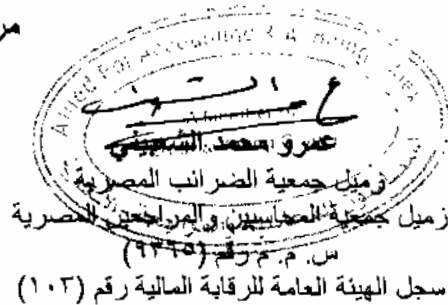 Allied For Accounting & Auditing
عمرو محمد الشعبيني
زميل جمعية الضرائب المصرية
زميل جمعية المحاسبين والمراجعين المصرية
س. م. م رقم (٩٣٦٥)
سجل الهيئة العامة للرقابة المالية رقم (١٠٢)